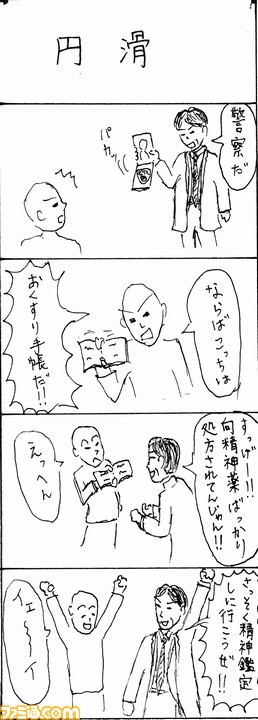 円滑
警察だ
パカッ
ならばこっちは
おくすり手帳だ!!
すっげー!!
向精神薬ばっかり
処方されてんじゃん!!
えっへん
さっそく精神鑑定
しに行こうぜ!!
イェ～～イ
ファミ通.com